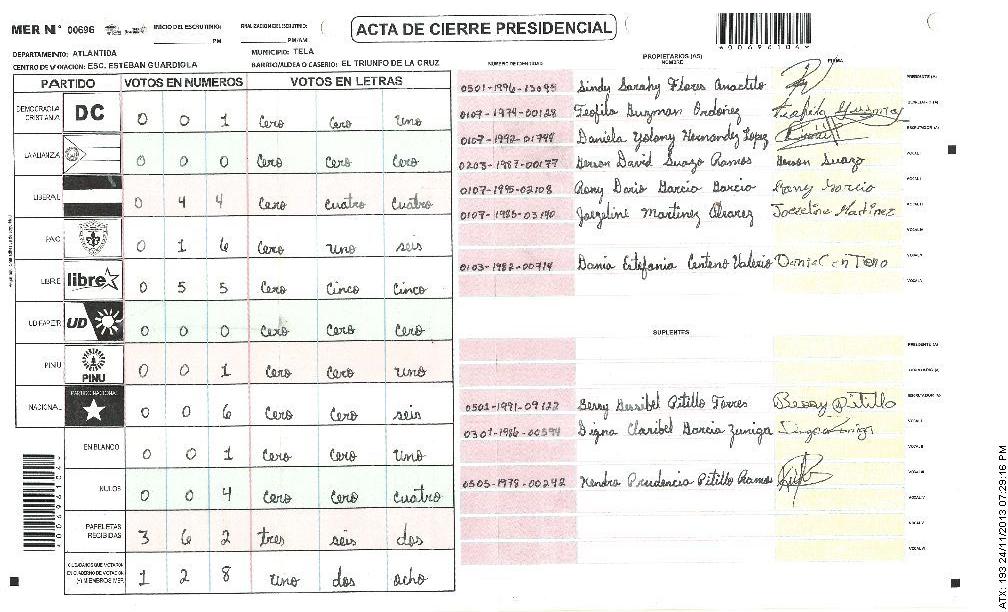 MER N° 00696 INICIO DEL ESCRUTINIO: PM PM/AM
ACTA DE CIERRE PRESIDENCIAL
DEPARTAMENTO: ATLANTIDA MUNICIPIO: TELA
CENTRO DE VOTACION: ESC. ESTEBAN GUARDIOLA BARRIO/ALDEA O CASERIO: EL TRIUNFO DE LA CRUZ
PARTIDO VOTOS EN NUMEROS VOTOS EN LETRAS
DEMOCRACIA CRISTIANA DC 0 0 1 Cero Cero Uno
LA ALIANZA 0 0 0 Cero Cero Cero
LIBERAL 0 4 4 Cero Cuatro Cuatro
PAC 0 1 6 Cero uno seis
LIBRE libre 0 5 5 Cero Cinco Cinco
UD FAPER UD 0 0 0 Cero Cero Cero
PINU PINU 0 0 1 Cero Cero uno
NACIONAL PARTIDO NACIONAL 0 0 6 Cero Cero seis
EN BLANCO 0 0 1 Cero Cero Uno
NULOS 0 0 4 Cero Cero cuatro
PAPELETAS RECIBIDAS 3 6 2 tres seis dos
CIUDADANOS QUE VOTARON EN CUADERNO DE VOTACION (+) MIEMBROS MER 1 2 8 uno dos ocho
PROPIETARIOS (AS)
NUMERO DE IDENTIDAD NOMBRE FIRMA
0501-1996-13095 Sindy Sarahy Flores Anactilo PRESIDENTE (A)
0107-1974-00128 Teofila Guzman Ordoñez Teofila Guzman SECRETARIO (A)
0107-1992-01744 Daniela Yolany Hernandez Lopez ESCRUTADOR (A)
0203-1987-00177 Gerson David Suazo Ramos Gerson Suazo VOCAL I
0107-1995-02108 Rony Dario Garcia Garcia Rony Garcia VOCAL II
0107-1985-03140 Joezeline Martinez Alvarez Joezeline Martinez VOCAL III
VOCAL IV
0103-1982-00714 Dania Estefania Centeno Valerio VOCAL V
SUPLENTES
PRESIDENTE (A)
SECRETARIO (A)
0501-1991-09122 Bessy Gissibel Pitillo Torres Bessy Pitillo ESCRUTADOR (A)
0301-1986-00594 Digna Claribel Garcia Zuniga VOCAL I
VOCAL II
0505-1978-00242 Kendra Prudencia Pitillo Ramos VOCAL III
VOCAL IV
VOCAL V
VOCAL VI
ATX: 193 24/11/2013 07:29:16 PM